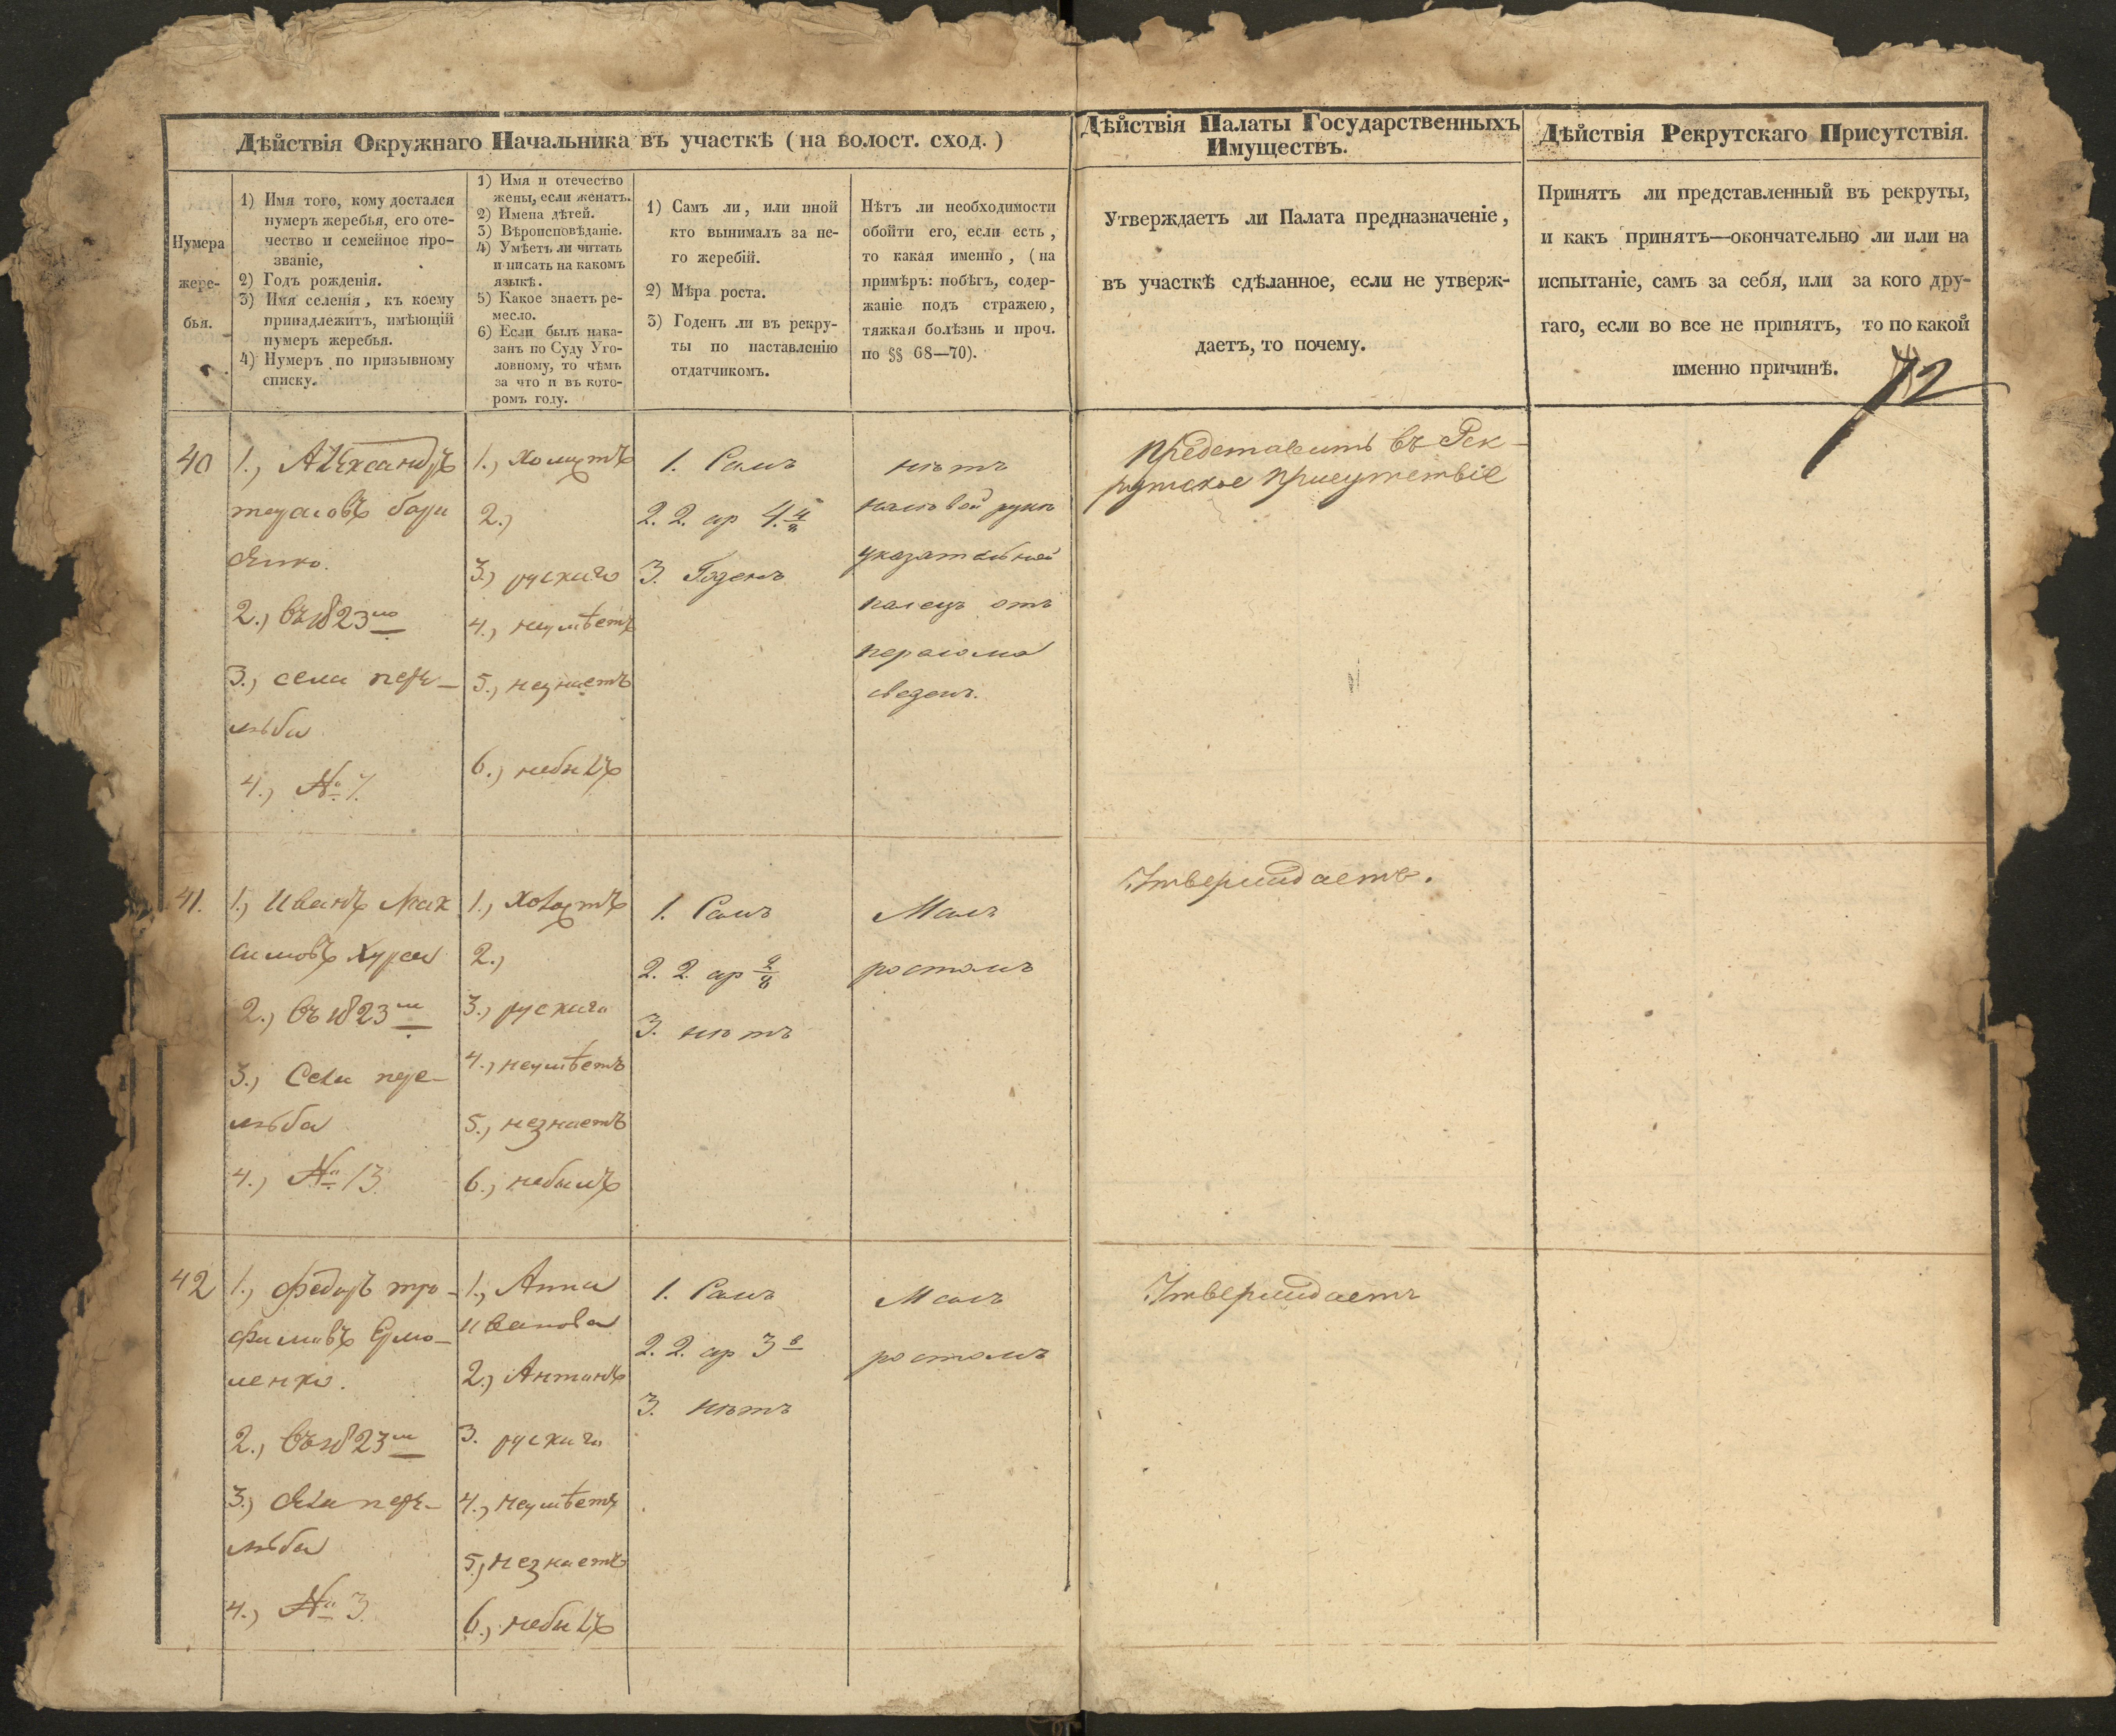 Дѣйствія Окружнаго Начальника въ участкѣ (на волост. сход.)
Дѣйствія Палаты Государственныхъ
Имуществъ.
Дѣйствія Рекрутскаго Присутствія.
Нумера
жере-
бья.
1) Имя того, кому достался
нумеръ жеребья, его оте-
чество и семейное про-
званіе,
2) Годъ рожденія.
3) Имя селенія, къ коему
принадлежитъ, имѣющій
нумеръ жеребья.
4) Нумеръ по призывному
списку.
1) Имя и отечество
жены, если женатъ.
2) Имена дѣтей.
3) Вѣроисповѣданіе.
4) Умѣетъ ли читать
и писать на какомъ
языкѣ.
5) Какое знаетъ ре-
месло.
6) Если былъ нака-
занъ по Суду Уго-
ловному, то чѣмъ
за что и въ кото-
ромъ году.
1) Самъ ли, или иной
кто вынималъ за не-
го жеребій.
2) Мѣра роста.
3) Годенъ ли въ рекру-
ты по наставленію
отдатчикомъ.
Нѣтъ ли необходимости
обойти его, если есть,
то какая именно, (на
примѣръ: побѣгъ, содер-
жаніе подъ стражею,
тяжкая болѣзнь и проч.
по §§ 68—70).
Утверждаетъ ли Палата предназначеніе,
въ участкѣ сдѣланное, если не утверж-
даетъ, то почему.
Принятъ ли представленный въ рекруты,
и какъ принятъ—окончательно ли или на
испытаніе, самъ за себя, или за кого дру-
гаго, если во все не принятъ, то по какой
именно причинѣ.
72
40
1., Александръ
2., въ 1823
3., села пере-
люба
4., № 7.
1., холостъ
2.,
3., рускаго
4., неумѣетъ
5., незнаетъ
6., небылъ
1. Самъ
2. 2. ар 4. 4/8
3. Годенъ
нѣтъ
на лѣвой рукѣ
указательной
палецъ отъ
перелома
сведенъ.
Представить въ Рек-
рутское присутствіе
41.
1., Иванъ Мак
симовъ
2., въ 1823
3., Села пере-
люба
4., № 13.
1., холостъ
2.,
3., рускаго
4., неумѣетъ
5., незнаетъ
6., небылъ
1. Самъ
2. 2. ар
3. нѣтъ
Малъ
ростомъ
Утверждаетъ.
42
1., Федоръ тро-
фимовъ Ермо-
ленко.
2., въ 1823
3., села пере-
люба
4., № 3.
1., Анна
Иванова
2., Антонъ
3. рускаго
4., неумѣетъ
5., незнаетъ
6., небылъ
1. Самъ
2. 2. ар 3
3. нѣтъ
Малъ
ростомъ
Утверждаетъ